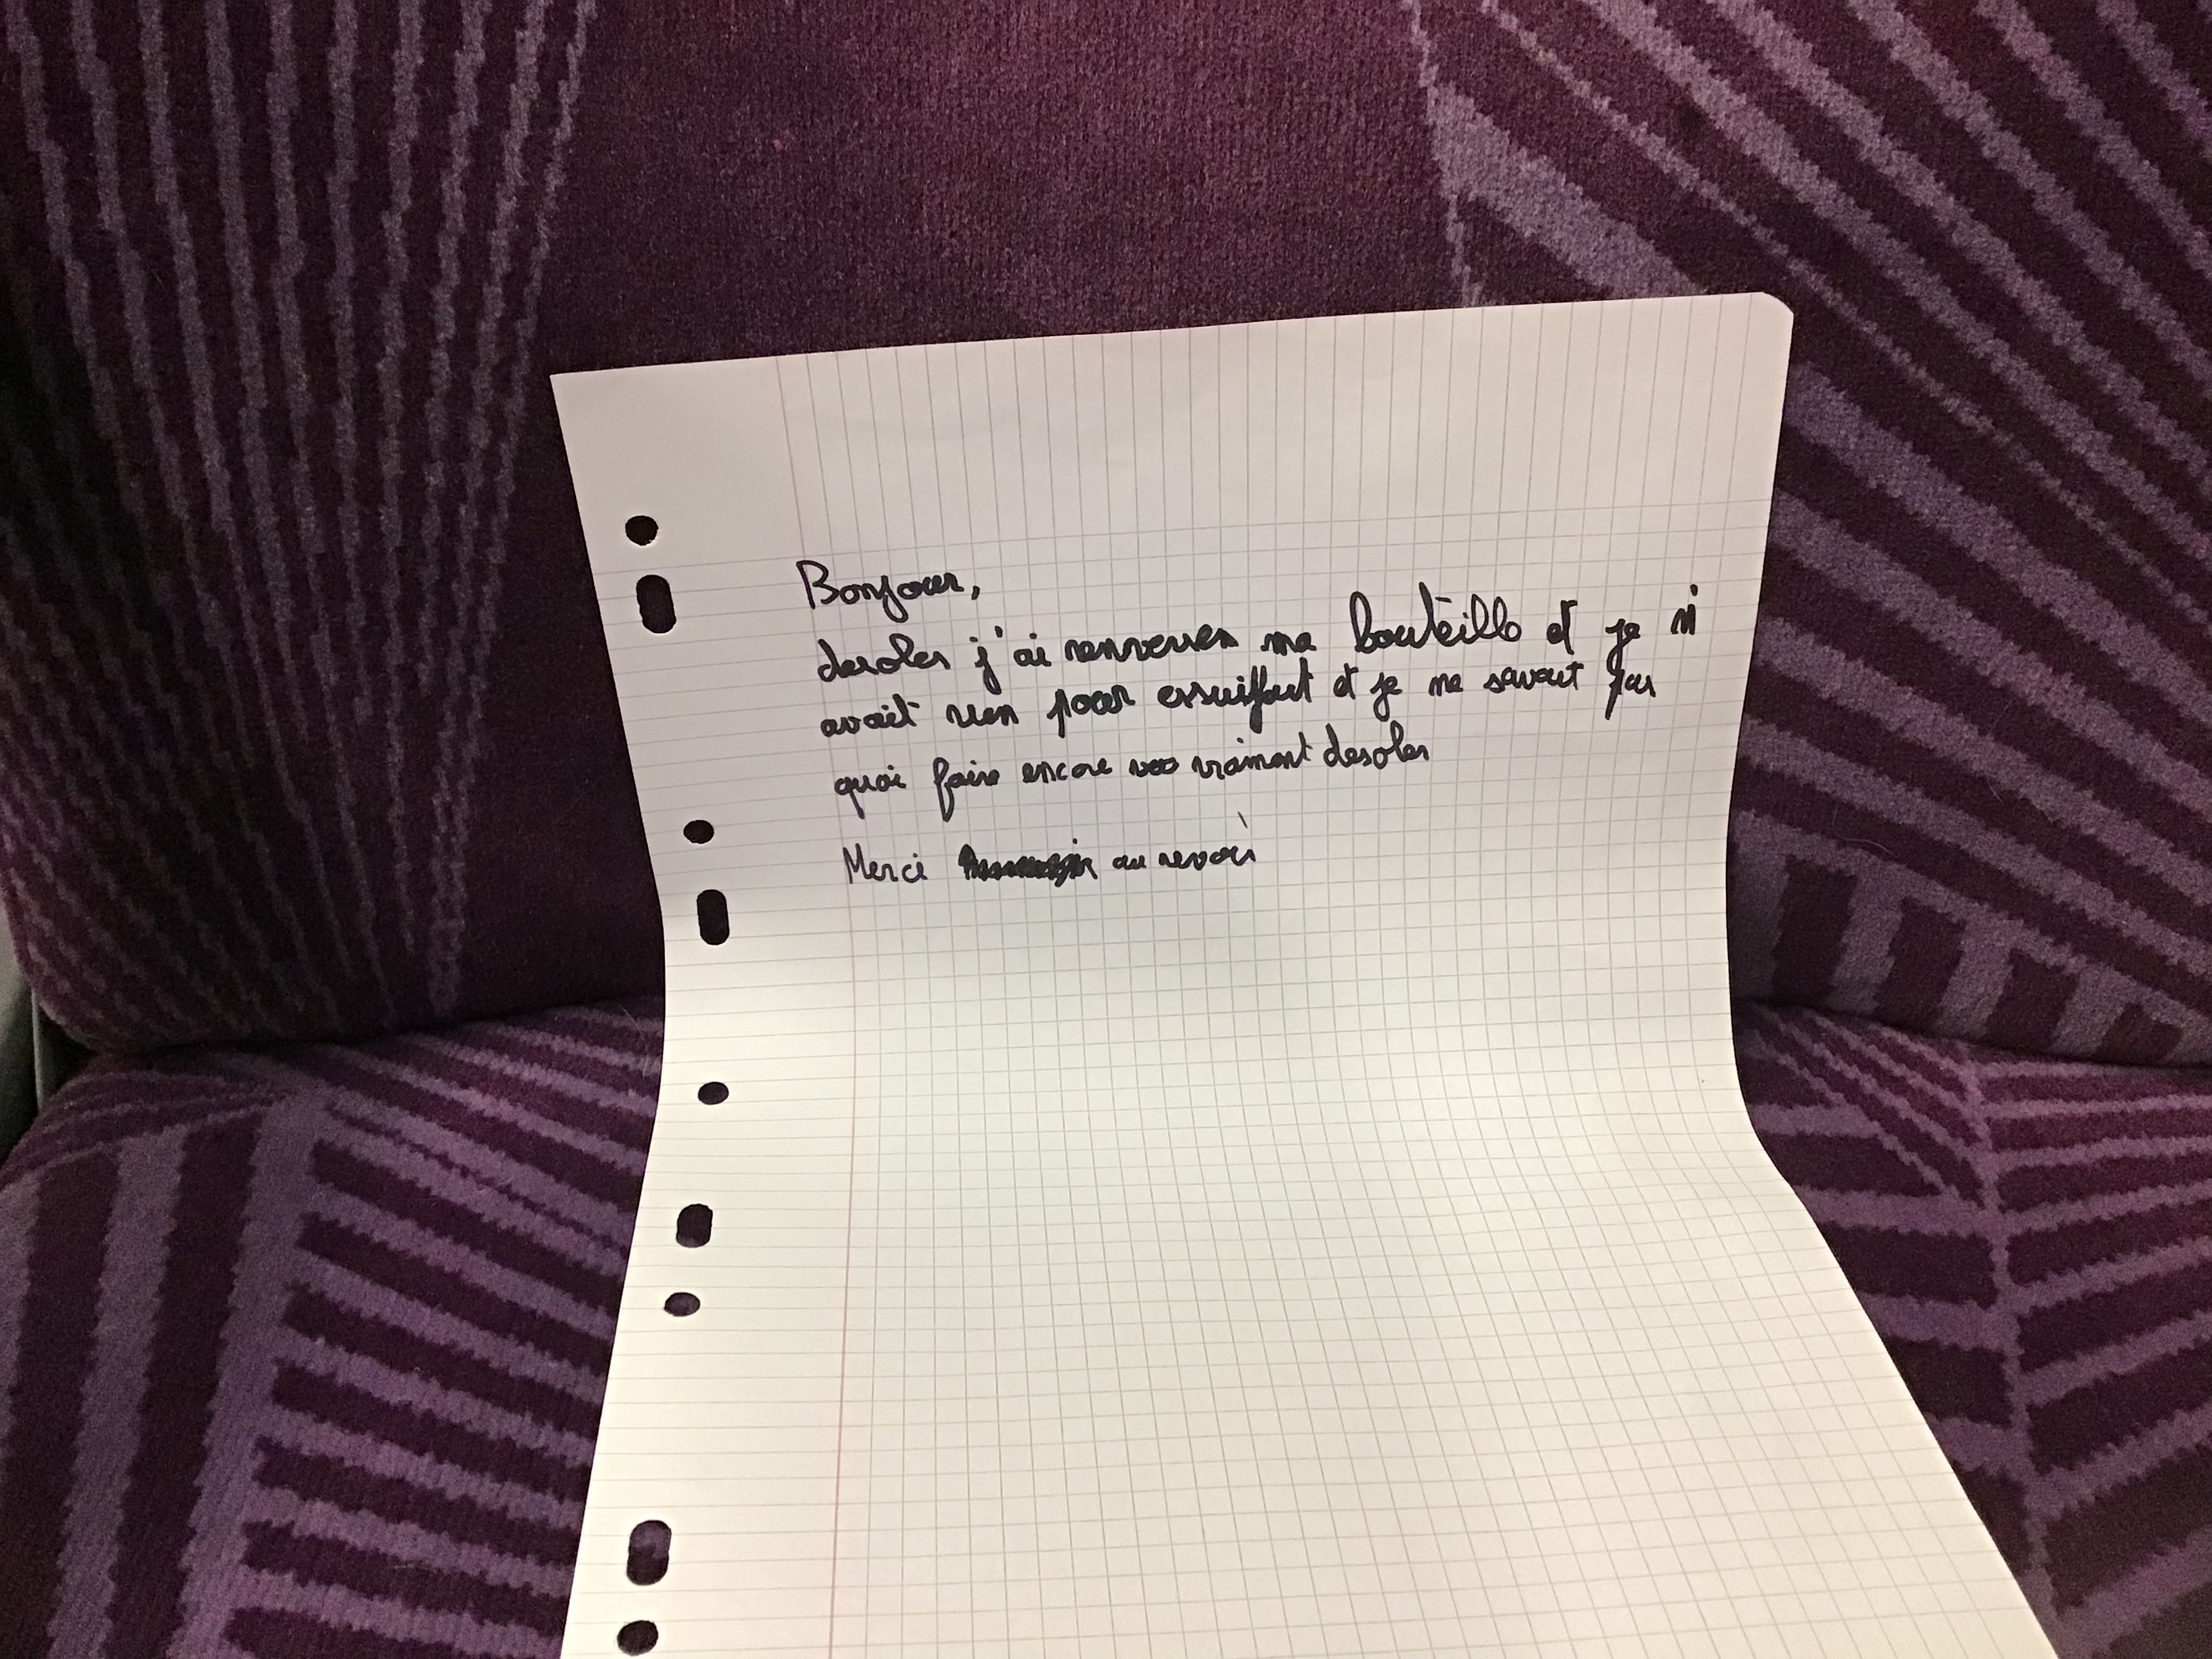 Bonjour,
desoler j'ai renverser ma bouteille et je n'
avait rien pour essuiffut et je ne savait pas
quoi faire encore vraiment desoler
Merci au revoir